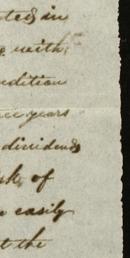 ted in
with
ndition
years
dividends
of
easily
t the